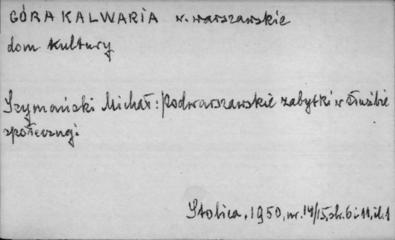 GÓRA KALWARIA w. warszawskie
dom kultury
Szymański Michał: Podwarszawskie zabytki w służbie
społecznej
Stolica, 1950, nr. 14/15, str. 6 i 11, il. 1